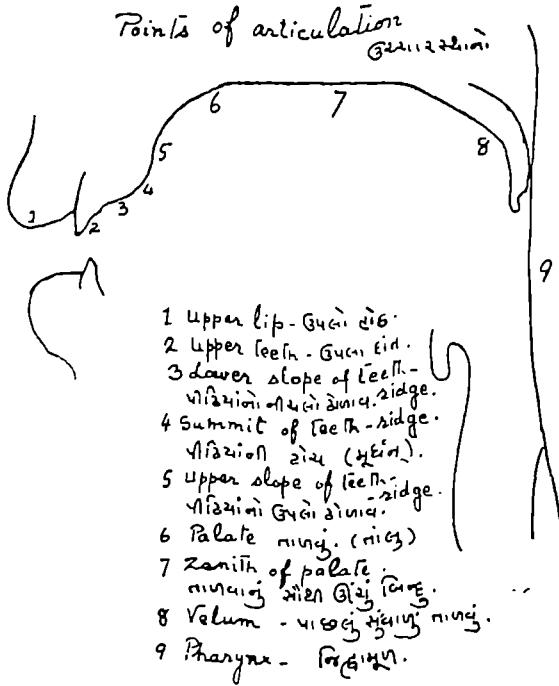 Points of articulation
ઉચ્ચારસ્થાનો
6
7
5
8
4
1
3
2
9
1 Upper lip - ઉપલો હોઠ.
2 Upper teeth - ઉપલા દાંત.
3 Lower slope of teeth-
ridge.
પીઢિયાંનો નીચલો ઢોળાવ.
4 Summit of teeth-ridge.
પીઢિયાંની ટોચ (મૂર્ધાન).
5 Upper slope of teeth-
ridge.
પીઢિયાંનો ઉપલો ઢોળાવ.
6 Palate તાળવું. (તાલુ)
7 Zenith of palate.
તાળવાનું સૌથી ઊંચું બિન્દુ.
8 Velum - પાછલું સુંવાળું તાળવું.
9 Pharynx - જિહ્વામૂળ.